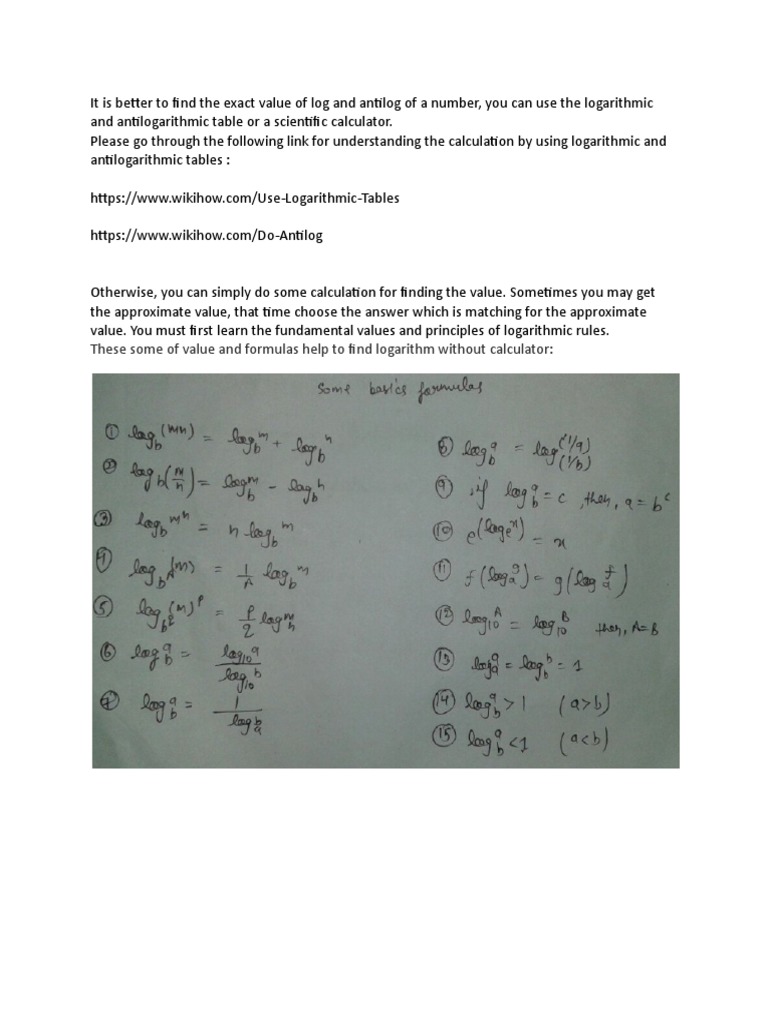 It is better to find the exact value of log and antilog of a number, you can use the logarithmic
and antilogarithmic table or a scientific calculator.
Please go through the following link for understanding the calculation by using logarithmic and
antilogarithmic tables :
https://www.wikihow.com/Use-Logarithmic-Tables
https://www.wikihow.com/Do-Antilog
Otherwise, you can simply do some calculation for finding the value. Sometimes you may get
the approximate value, that time choose the answer which is matching for the approximate
value. You must first learn the fundamental values and principles of logarithmic rules.
These some of value and formulas help to find logarithm without calculator:
Some basics formulas
① log_b^(mn) = log_b^m + log_b^n
② log_b(m/n) = log_b^m - log_b^n
③ log_b^m^n = n log_b^m
④ log_b^A^(m) = 1/A log_b^m
⑤ (m)^p = p/2
⑥ log_b^a = log_10^a / log_10^b
⑦ log_b^a = 1 / log_a^b
log_b^a = log_(1/b)^(1/a)
⑨ if log_b^a = c, then, a = b^c
⑩ e^(log_e^x) = x
⑪ f^(log_a^g) = g^(log_a^f)
⑫ log_10^A = log_10^B then, A=B
⑬ log_a^a = log_b^b = 1
⑭ log_b^a > 1 (a>b)
⑮ log_b^a < 1 (a<b)